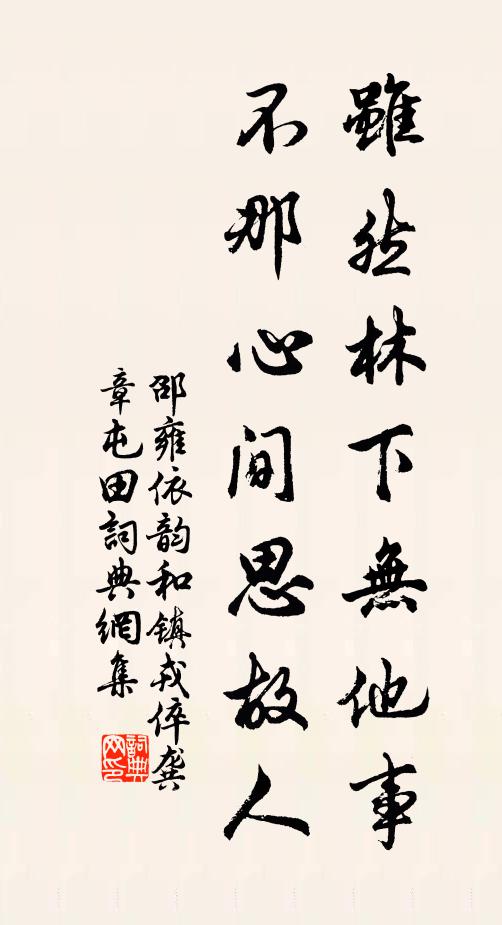 雖然林下無他事
不那心間思故人
邵雍依韵和鎮戎倅龔
章屯田詞典網集
詞典
网印